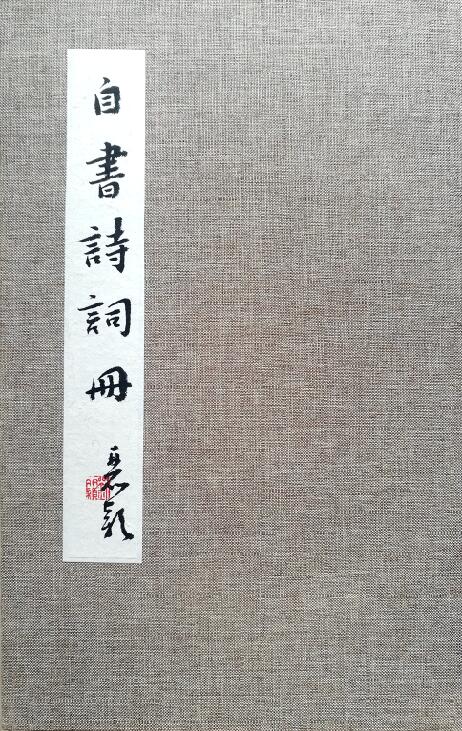 自書詩詞冊